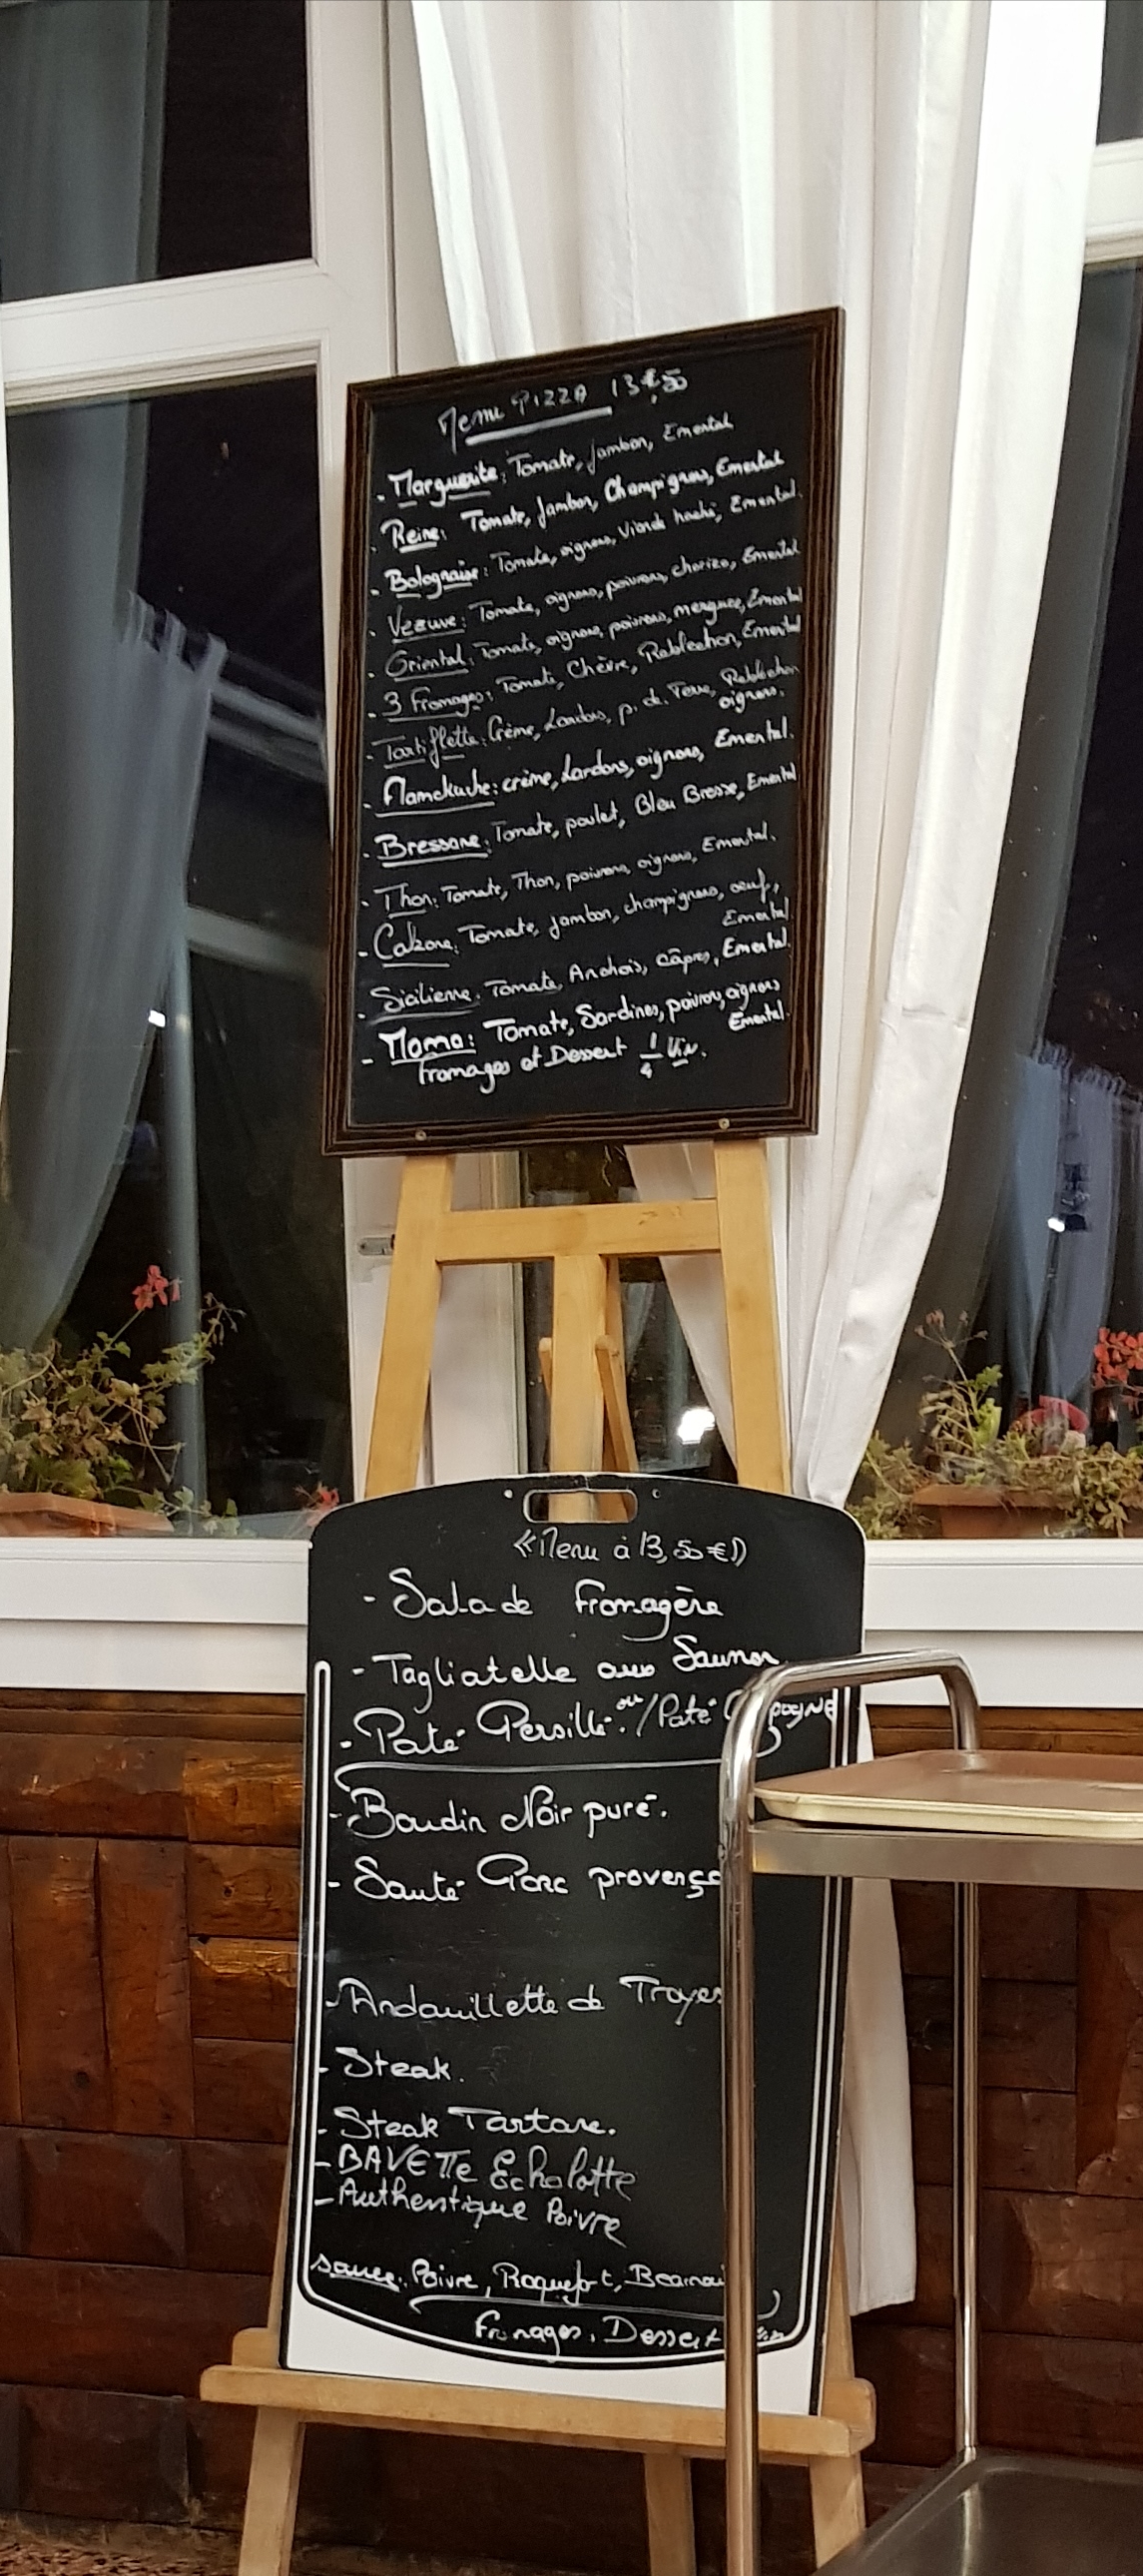 Menu PIZZA 13€,50
- Marguerite: Tomate, Jambon, Emental
- Reine: Tomate, Jambon, Champignons, Emental
- Bolognaise: Tomate, oignons, Viande haché, Emental.
- Vézuve: Tomate, oignons, poivrons, chorizo, Emental
- Oriental: Tomate, oignons, poivrons, merguez, Emental
- 3 Fromages: Tomate, Chèvre, Reblechon, Emental
- Tartiflette: Crème, Lardons, p. de Terre, Reblechon
oignons.
- Flamekuche: crème, Lardons, oignons, Emental.
- Bressane: Tomate, poulet, Bleu Bresse, Emental
- Thon: Tomate, Thon, poivrons, oignons, Emental.
- Calzone: Tomate, Jambon, champignons, oeuf,
Emental
- Sicilienne: Tomate, Anchois, câpres, Emental.
- Momo: Tomate, Sardines, poivron, oignons
Emental.
fromages et Dessert 1/4 Vin.
«Menu à 13,50€»
- Salade fromagère
- Tagliatelle aux Saumon
- Paté Persillé ou / Paté
- Boudin Noir puré.
- Sauté Porc
- Andouillette de Troyes
- Steak.
- Steak Tartare.
- BAVETTe Echalotte
- Authentique Poivre
sauce: Poivre, Roquefort,
fromages, Dessert